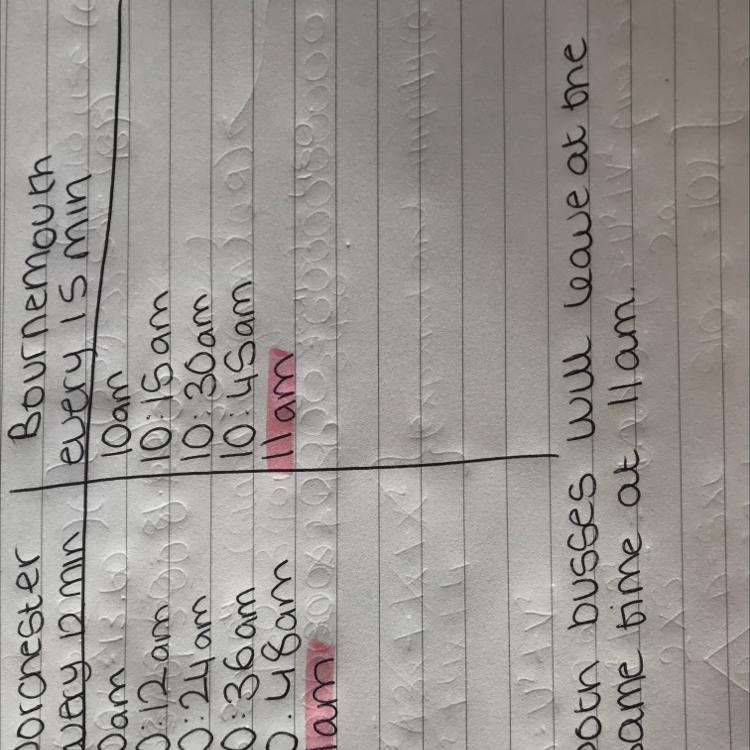 orchester Bournemouth
very 12 min every 15 min
0am 10am
0:12am 10:15am
0:24am 10:30am
0:36am 10:45am
0.48am 11am
1am
oth busses will leave at the
ame time at 11am.